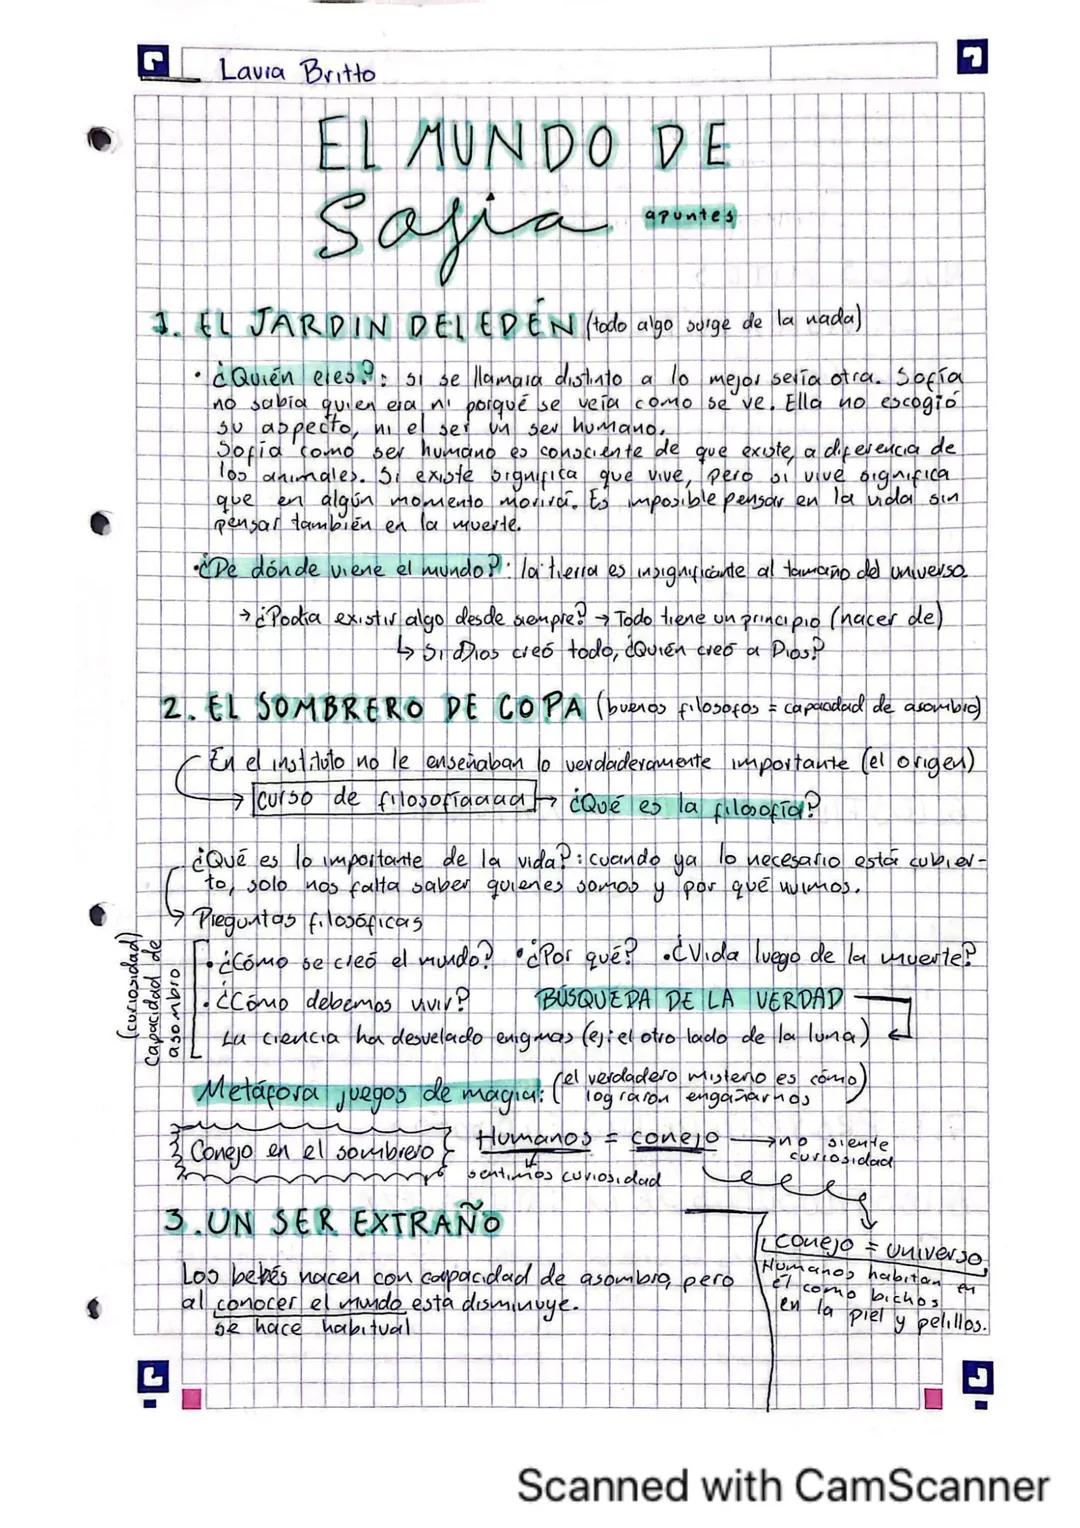 Laura Britto
EL MUNDO DE
Sofia apuntes
1. EL JARDIN DEL EDÉN (todo algo surge de la nada)
• ¿Quién eres?: si se llamara distinto a lo mejor sería otra. Sofía
no sabía quien era ni porqué se veía como se ve. Ella no escogió
su aspecto, ni el ser un ser humano.
Sofía como ser humano es consciente de que existe, a diferencia de
los animales. Si existe significa que vive, pero si vive significa
que en algún momento morirá. Es imposible pensar en la vida sin
pensar también en la muerte.
• ¿De dónde viene el mundo?: la tierra es insignificante al tamaño del universo.
→ ¿Podía existir algo desde siempre? → Todo tiene un principio (nacer de)
↳ Si Dios creó todo, ¿Quién creó a Dios?
2. EL SOMBRERO DE COPA (buenos filosofos = capacidad de asombro)
En el instituto no le enseñaban lo verdaderamente importante (el origen)
→ curso de filosofíaaaa → ¿Qué es la filosofía?
¿Qué es lo importante de la vida?: cuando ya lo necesario está cubier-
to, solo nos falta saber quienes somos y por qué vivimos.
→ Preguntas filosóficas
(curiosidad)
capacidad de
asombro
• ¿Cómo se creó el mundo? • ¿Por qué? • ¿Vida luego de la muerte?
• ¿Cómo debemos vivir? BÚSQUEDA DE LA VERDAD
La ciencia ha desvelado enigmas (ej: el otro lado de la luna)
Metáfora juegos de magia: (el verdadero misterio es cómo
lograron engañarnos)
Conejo en el sombrero Humanos = conejo → no siente
curiosidad
sentimos curiosidad
3. UN SER EXTRAÑO
conejo = universo,
Humanos habitan en
él como bichos
en la piel y pelillos.
Los bebés nacen con capacidad de asombro, pero
al conocer el mundo esta disminuye.
se hace habitual
Scanned with CamScanner